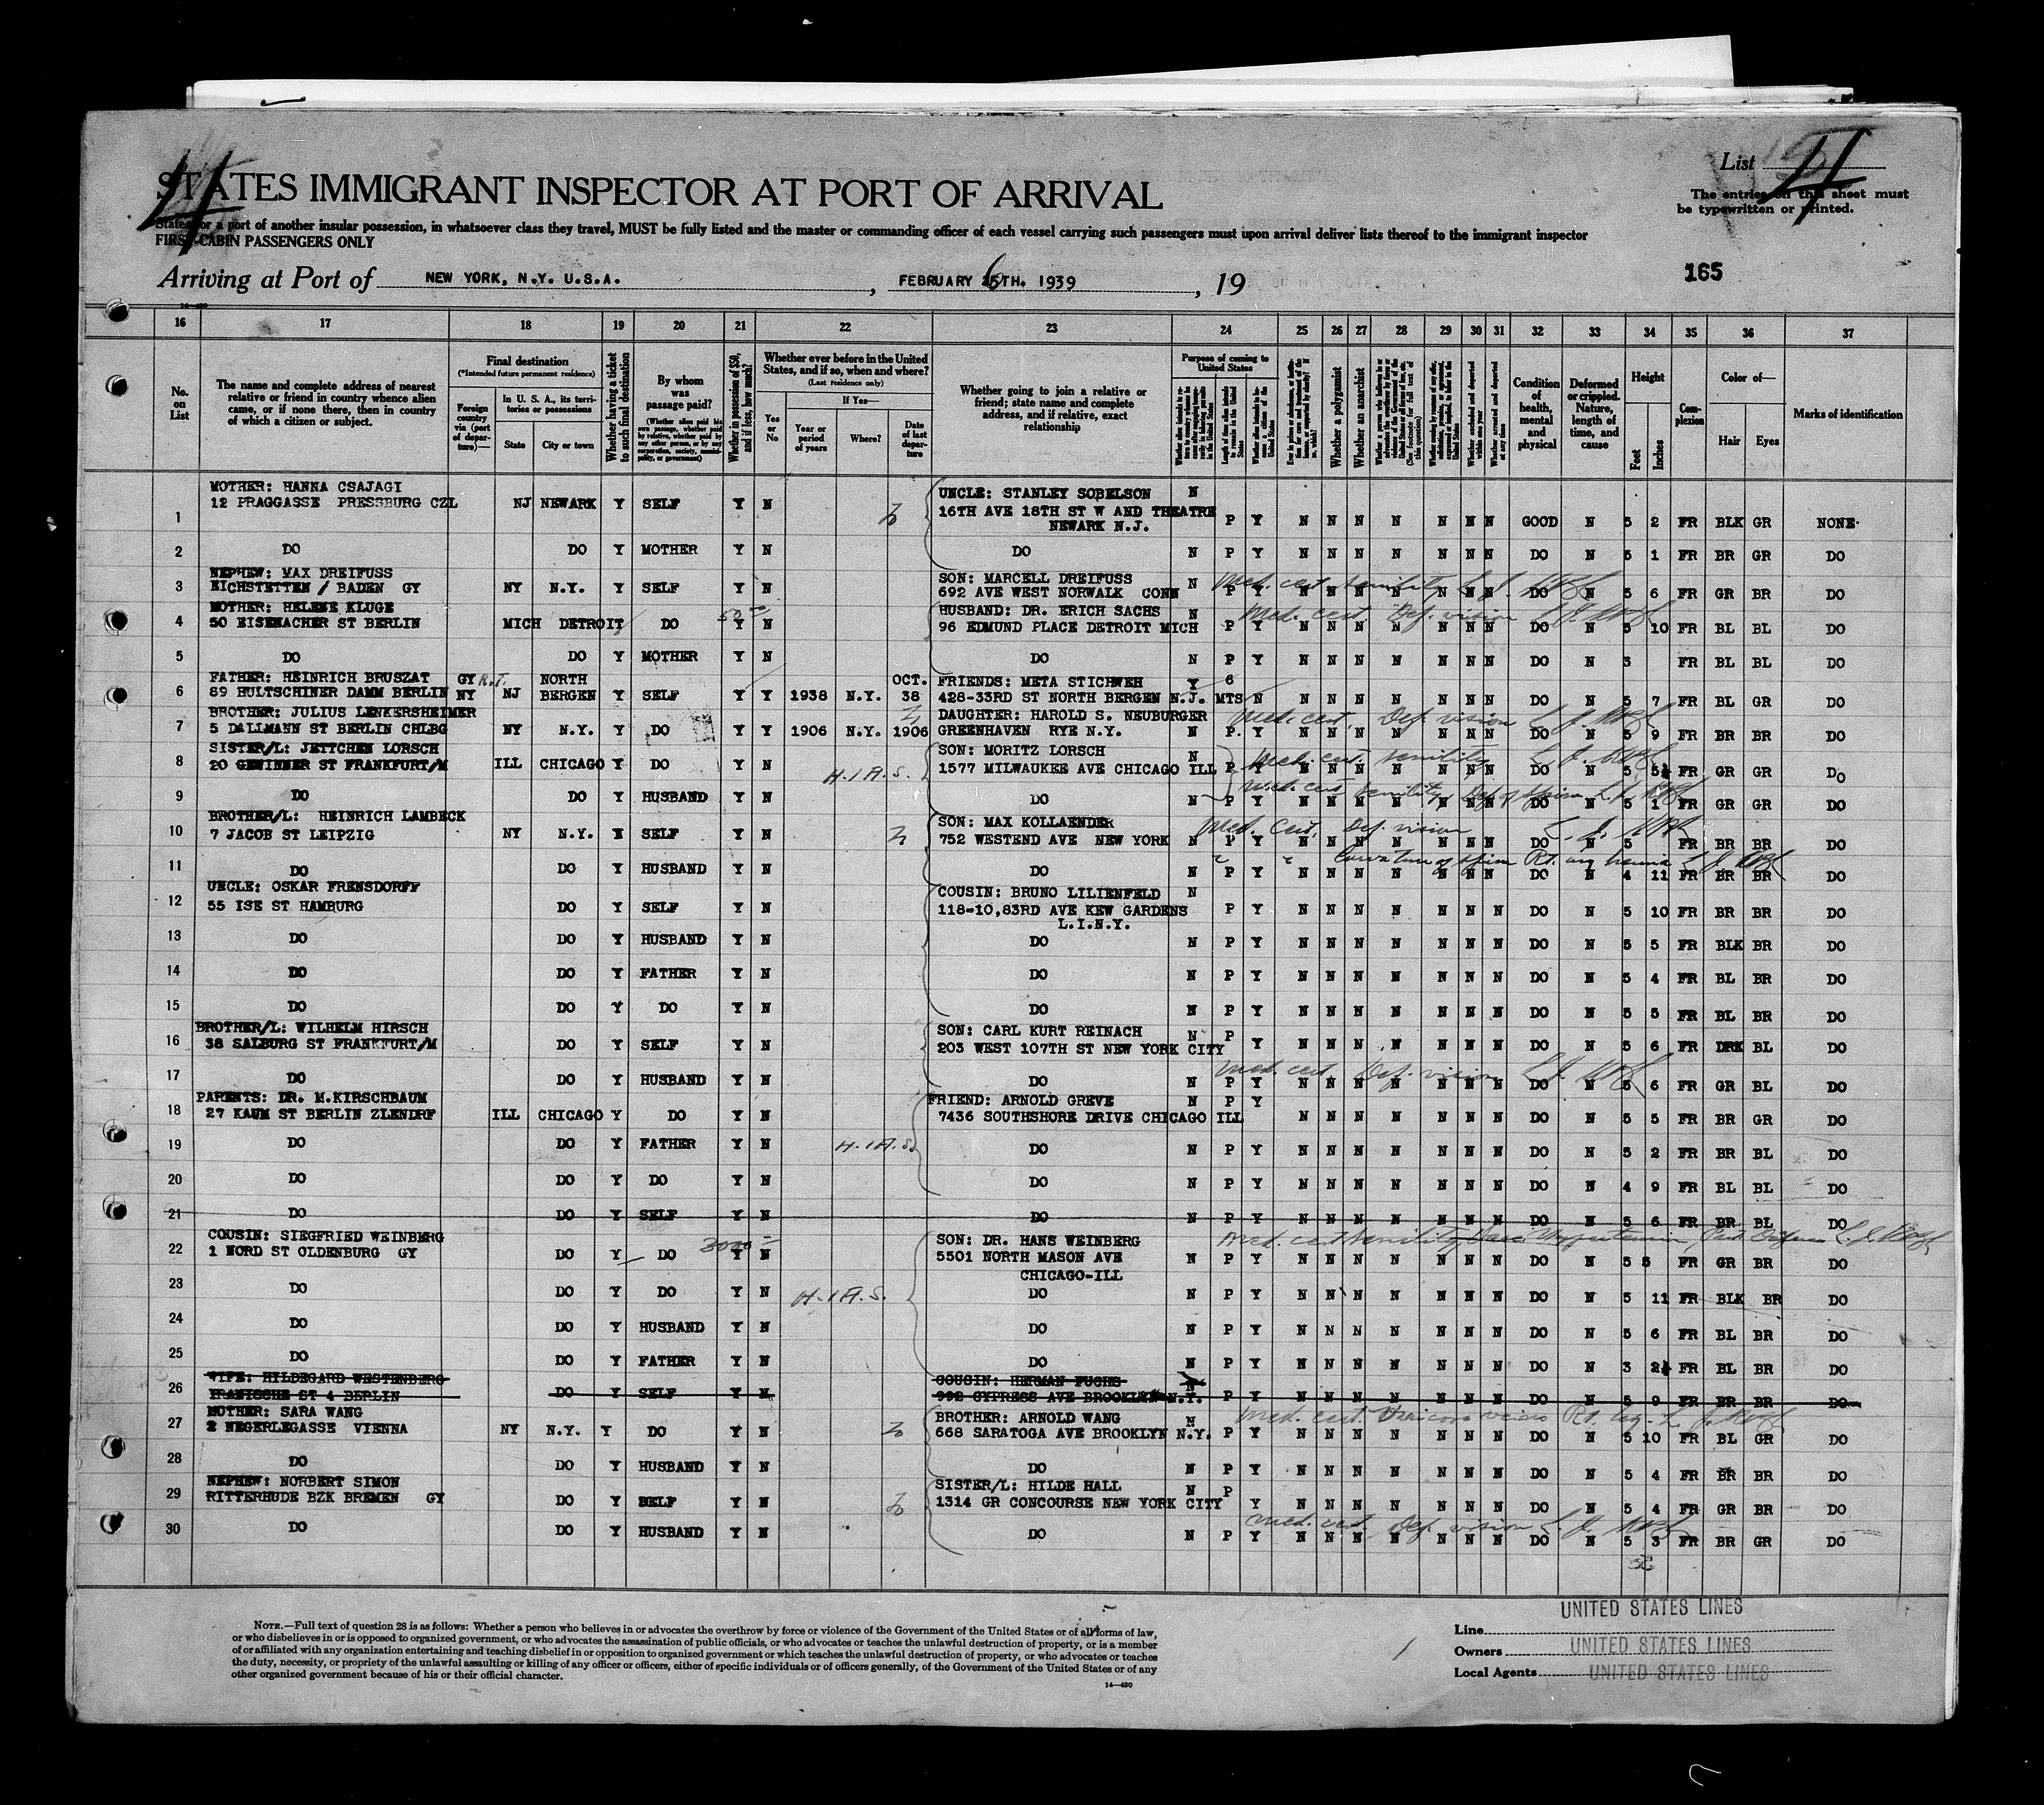 List 4
4
STATES IMMIGRANT INSPECTOR AT PORT OF ARRIVAL
The entries on this sheet must
be typewritten or printed.
States or a port of another insular possession, in whatsoever class they travel, MUST be fully listed and the master or commanding officer of each vessel carrying such passengers must upon arrival deliver lists thereof to the immigrant inspector
FIRST-CABIN PASSENGERS ONLY
Arriving at Port of NEW YORK, N.Y. U.S.A. , FEBRUARY 6TH. 1939 , 19
165
14—430
16 17 18 19 20 21 22 23 24 25 26 27 28 29 30 31 32 33 34 35 36 37
No. on List
The name and complete address of nearest
relative or friend in country whence alien
came, or if none there, then in country
of which a citizen or subject.
Final destination
(*Intended future permanent residence)
Foreign country via (port of departure)—
In U. S. A., its territories or possessions
State
City or town
Whether having a ticket to such final destination
By whom was passage paid?
(Whether alien paid his own passage, whether paid by relative, whether paid by any other person, or by any corporation, society, municipality, or government)
Whether in possession of $50, and if less, how much?
Whether ever before in the United States, and if so, when and where?
(Last residence only)
Yes or No
If Yes—
Year or period of years
Where?
Date of last departure
Whether going to join a relative or
friend; state name and complete
address, and if relative, exact
relationship
Purpose of coming to United States
Whether a polygamist
Whether an anarchist
Condition of health, mental and physical
Deformed or crippled. Nature, length of time, and cause
Height
Feet
Inches
Complexion
Color of—
Hair
Eyes
Marks of identification
MOTHER: HANNA CSAJAGI UNCLE: STANLEY SOBELSON N
1 12 PRAGGASSE PRESSBURG CZL NJ NEWARK Y SELF Y N 16TH AVE 18TH ST W AND THEATRE
NEWARK N.J. P Y N N N N N N N GOOD N 5 2 FR BLK GR NONE
2 DO DO Y MOTHER Y N DO N P Y N N N N N N N DO N 5 1 FR BR GR DO
NEPHEW: MAX DREIFUSS SON: MARCELL DREIFUSS N Med. cert. senility
3 EICHSTETTEN / BADEN GY NY N.Y. Y SELF Y N 692 AVE WEST NORWALK CONN P Y N N N N N N N DO N 5 6 FR GR BR DO
MOTHER: HELENE KLUGE HUSBAND: DR. ERICH SACHS N Med. cert. Def. vision
4 50 EISENACHER ST BERLIN MICH DETROIT DO 50 Y N 96 EDMUND PLACE DETROIT MICH P Y N N N N N N N DO N 5 10 FR BL BL DO
5 DO DO Y MOTHER Y N DO N P Y N N N N N N N DO N 3 FR BL BL DO
FATHER: HEINRICH BRUSZAT GY R.T. NORTH OCT. FRIENDS: META STICHWEH Y 6
6 89 HULTSCHINER DAMM BERLIN NY NJ BERGEN Y SELF Y Y 1938 N.Y. 38 428-33RD ST NORTH BERGEN N.J. MTS N N N N N N N N DO N 5 7 FR BL GR DO
BROTHER: JULIUS LENKERSHEIMER DAUGHTER: HAROLD S. NEUBURGER Med. cert. Def. vision
7 5 DALLMANN ST BERLIN CHLBG NY N.Y. Y DO Y Y 1906 N.Y. 1906 GREENHAVEN RYE N.Y. N P. Y N N N N N N N DO N 5 9 FR BR BR DO
SISTER/L: JETTCHEN LORSCH SON: MORITZ LORSCH N Med. cert. senility
8 20 GEWINNER ST FRANKFURT/M ILL CHICAGO Y DO Y N H.I.A.S. 1577 MILWAUKEE AVE CHICAGO ILL P Y N N N N N N N DO N 5 5½ FR GR GR DO
9 DO DO Y HUSBAND Y N DO N P Y Med. cert. senility, Def. of spine N N N N N N N DO N 5 1 FR GR GR DO
BROTHER/L: HEINRICH LAMBECK SON: MAX KOLLAENDER Med. Cert. Def. vision
10 7 JACOB ST LEIPZIG NY N.Y. Y SELF Y N 752 WESTEND AVE NEW YORK N P Y N N N N N N N DO N 5 FR BR BR DO
11 DO DO Y HUSBAND Y N DO N P Y Curvature of spine Rt. ing hernia N N N N N N N DO N 4 11 FR BR BR DO
UNCLE: OSKAR FRENSDORFF COUSIN: BRUNO LILIENFELD N
12 55 ISE ST HAMBURG DO Y SELF Y N 118-10,83RD AVE KEW GARDENS P Y N N N N N N N DO N 5 10 FR BR BR DO
L.I.N.Y.
13 DO DO Y HUSBAND Y N DO N P Y N N N N N N N DO N 5 5 FR BLK BR DO
14 DO DO Y FATHER Y N DO N P Y N N N N N N N DO N 5 4 FR BL BR DO
15 DO DO Y DO Y N DO N P Y N N N N N N N DO N 5 5 FR BL BR DO
BROTHER/L: WILHELM HIRSCH SON: CARL KURT REINACH N P
16 38 SALBURG ST FRANKFURT/M DO Y SELF Y N 203 WEST 107TH ST NEW YORK CITY Y N N N N N N N DO N 5 6 FR DRK BL DO
17 DO DO Y HUSBAND Y N DO N P Y Med. cert. Def. vision N N N N N N N DO N 5 6 FR GR BL DO
PARENTS: DR. M.KIRSCHBAUM FRIEND: ARNOLD GREVE N P Y
18 27 KAUM ST BERLIN ZLENDRF ILL CHICAGO Y DO Y N 7436 SOUTHSHORE DRIVE CHICAGO ILL N N N N N N N DO N 5 5 FR BR GR DO
19 DO DO Y FATHER Y N H.I.A.S. DO N P Y N N N N N N N DO N 5 2 FR BR BL DO
20 DO DO Y DO Y N DO N P Y N N N N N N N DO N 4 9 FR BL BL DO
21 DO DO Y SELF Y N DO N P Y N N N N N N N DO N 5 6 FR BR BL DO
COUSIN: SIEGFRIED WEINBERG SON: DR. HANS WEINBERG Med. cert. senility
22 1 NORD ST OLDENBURG GY DO Y DO 3000 Y N 5501 NORTH MASON AVE N P Y N N N N N N N DO N 5 5 FR GR BR DO
CHICAGO-ILL
23 DO DO Y DO Y N H.I.A.S. DO N P Y N N N N N N N DO N 5 11 FR BLK BR DO
24 DO DO Y HUSBAND Y N DO N P Y N N N N N N N DO N 5 6 FR BL BR DO
25 DO DO Y FATHER Y N DO N P Y N N N N N N N DO N 3 2½ FR BL BR DO
WIFE: HILDEGARD WESTENBERG COUSIN: HERMAN FUCHS N
26 IRANISCHE ST 4 BERLIN DO SELF Y N 992 CYPRESS AVE BROOKLYN N.Y. P Y N N N N N N N DO N 5 9 FR BR BR DO
MOTHER: SARA WANG BROTHER: ARNOLD WANG N Med. cert. Varicose veins Rt. leg
27 2 NEGERLEGASSE VIENNA NY N.Y. Y DO Y N 668 SARATOGA AVE BROOKLYN N.Y. P Y N N N N N N N DO N 5 10 FR BL GR DO
28 DO DO Y HUSBAND Y N DO N P Y N N N N N N N DO N 5 4 FR BR BR DO
NEPHEW: NORBERT SIMON SISTER/L: HILDE HALL N P
29 RITTERHUDE BZK BREMEN GY DO Y SELF Y N 1314 GR CONCOURSE NEW YORK CITY Y N N N N N N N DO N 5 4 FR GR BR DO
30 DO DO Y HUSBAND Y N DO N P Y Med. cert. Def. vision N N N N N N N DO N 5 3 FR BR GR DO
NOTE.—Full text of question 28 is as follows: Whether a person who believes in or advocates the overthrow by force or violence of the Government of the United States or of all forms of law,
or who disbelieves in or is opposed to organized government, or who advocates the assassination of public officials, or who advocates or teaches the unlawful destruction of property, or is a member
of or affiliated with any organization entertaining and teaching disbelief in or opposition to organized government or which teaches the unlawful destruction of property, or who advocates or teaches
the duty, necessity, or propriety of the unlawful assaulting or killing of any officer or officers, either of specific individuals or of officers generally, of the Government of the United States or of any
other organized government because of his or their official character.
14—430
Line UNITED STATES LINES
Owners UNITED STATES LINES
Local Agents UNITED STATES LINES